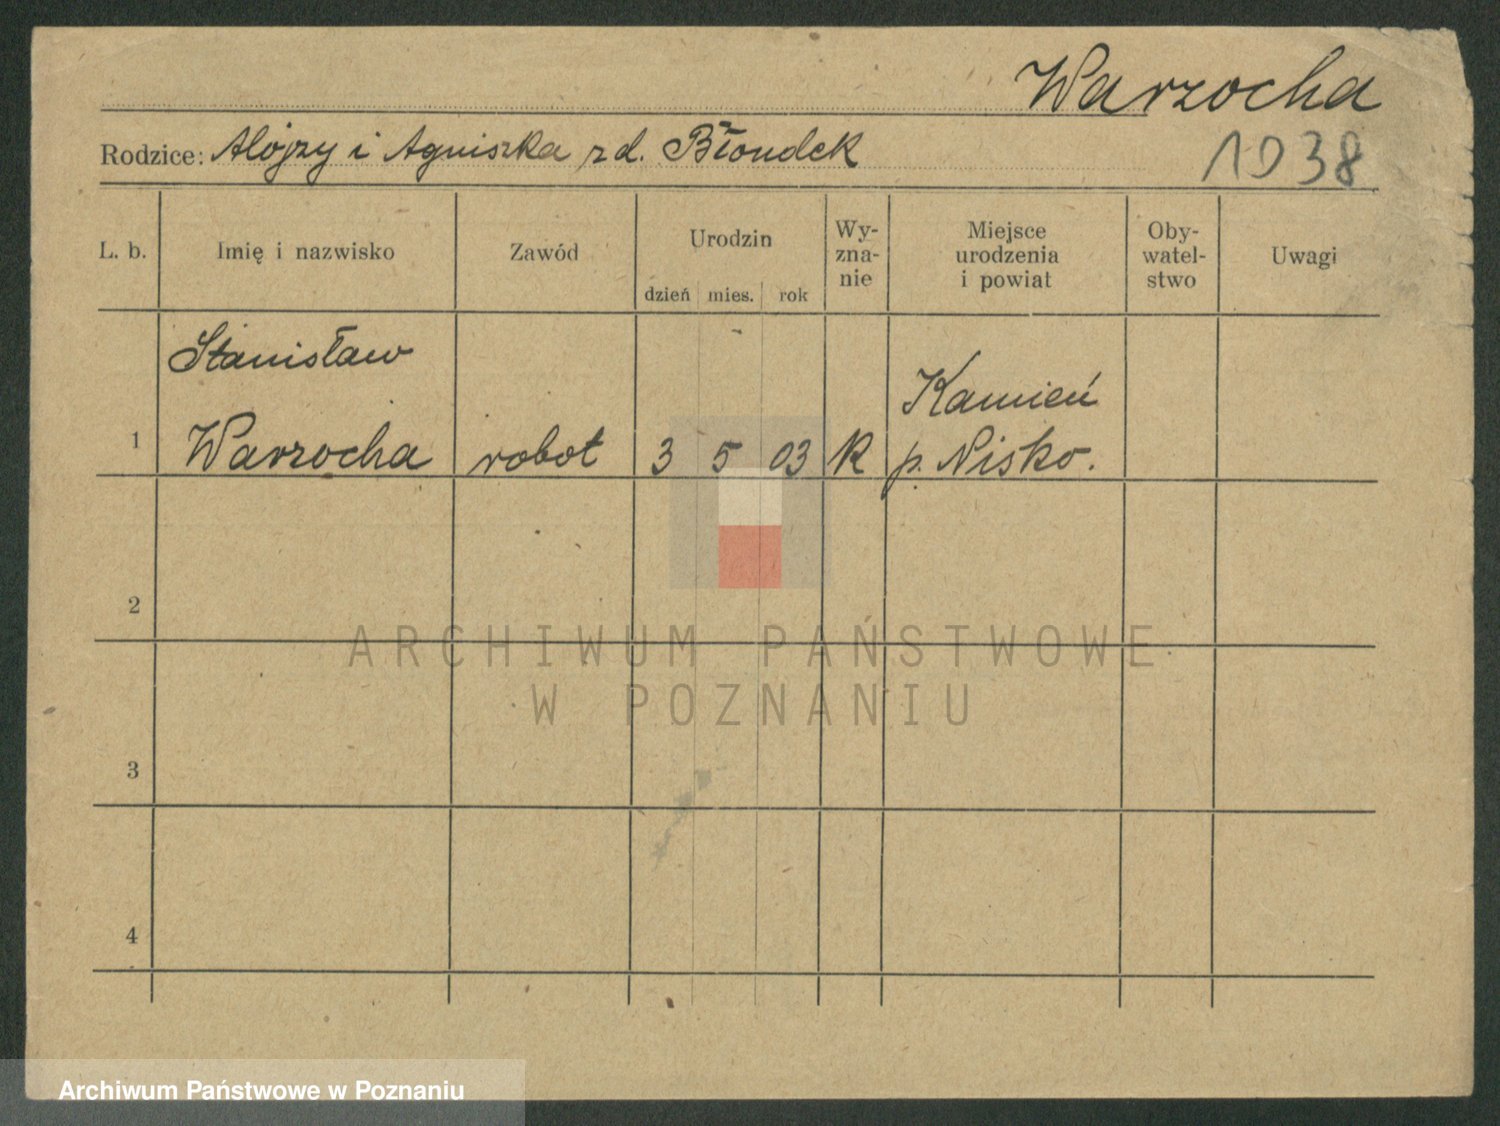 Warzocha
Rodzice: Alojzy i Agniszka zd. Błondek
1938
L. b. Imię i nazwisko Zawód Urodzin Wy-zna-nie Miejsce urodzenia i powiat Oby-watel-stwo Uwagi
dzień mies. rok
Stanisław
Kamień
1 Warzocha robot 3 5 03 K p. Nisko.
2
ARCHIWUM PAŃSTWOWE
W POZNANIU
3
4
Archiwum Państwowe w Poznaniu